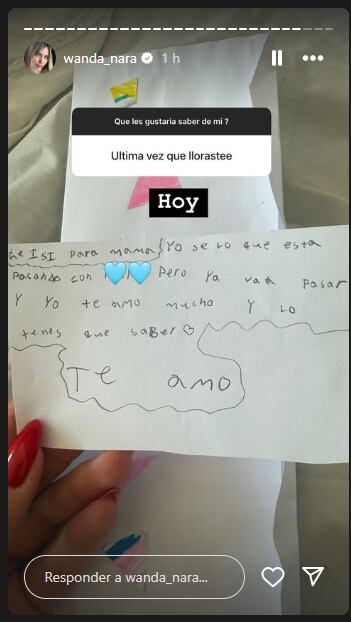 wanda_nara 1 h
Que les gustaria saber de mi ?
Ultima vez que llorastee
Hoy
De ISI para mama Yo se lo que esta
pasando con Pero Ya va a pasar
Y Yo te amo mucho Y lo
tenes que saber
Te amo
Responder a wanda_nara...